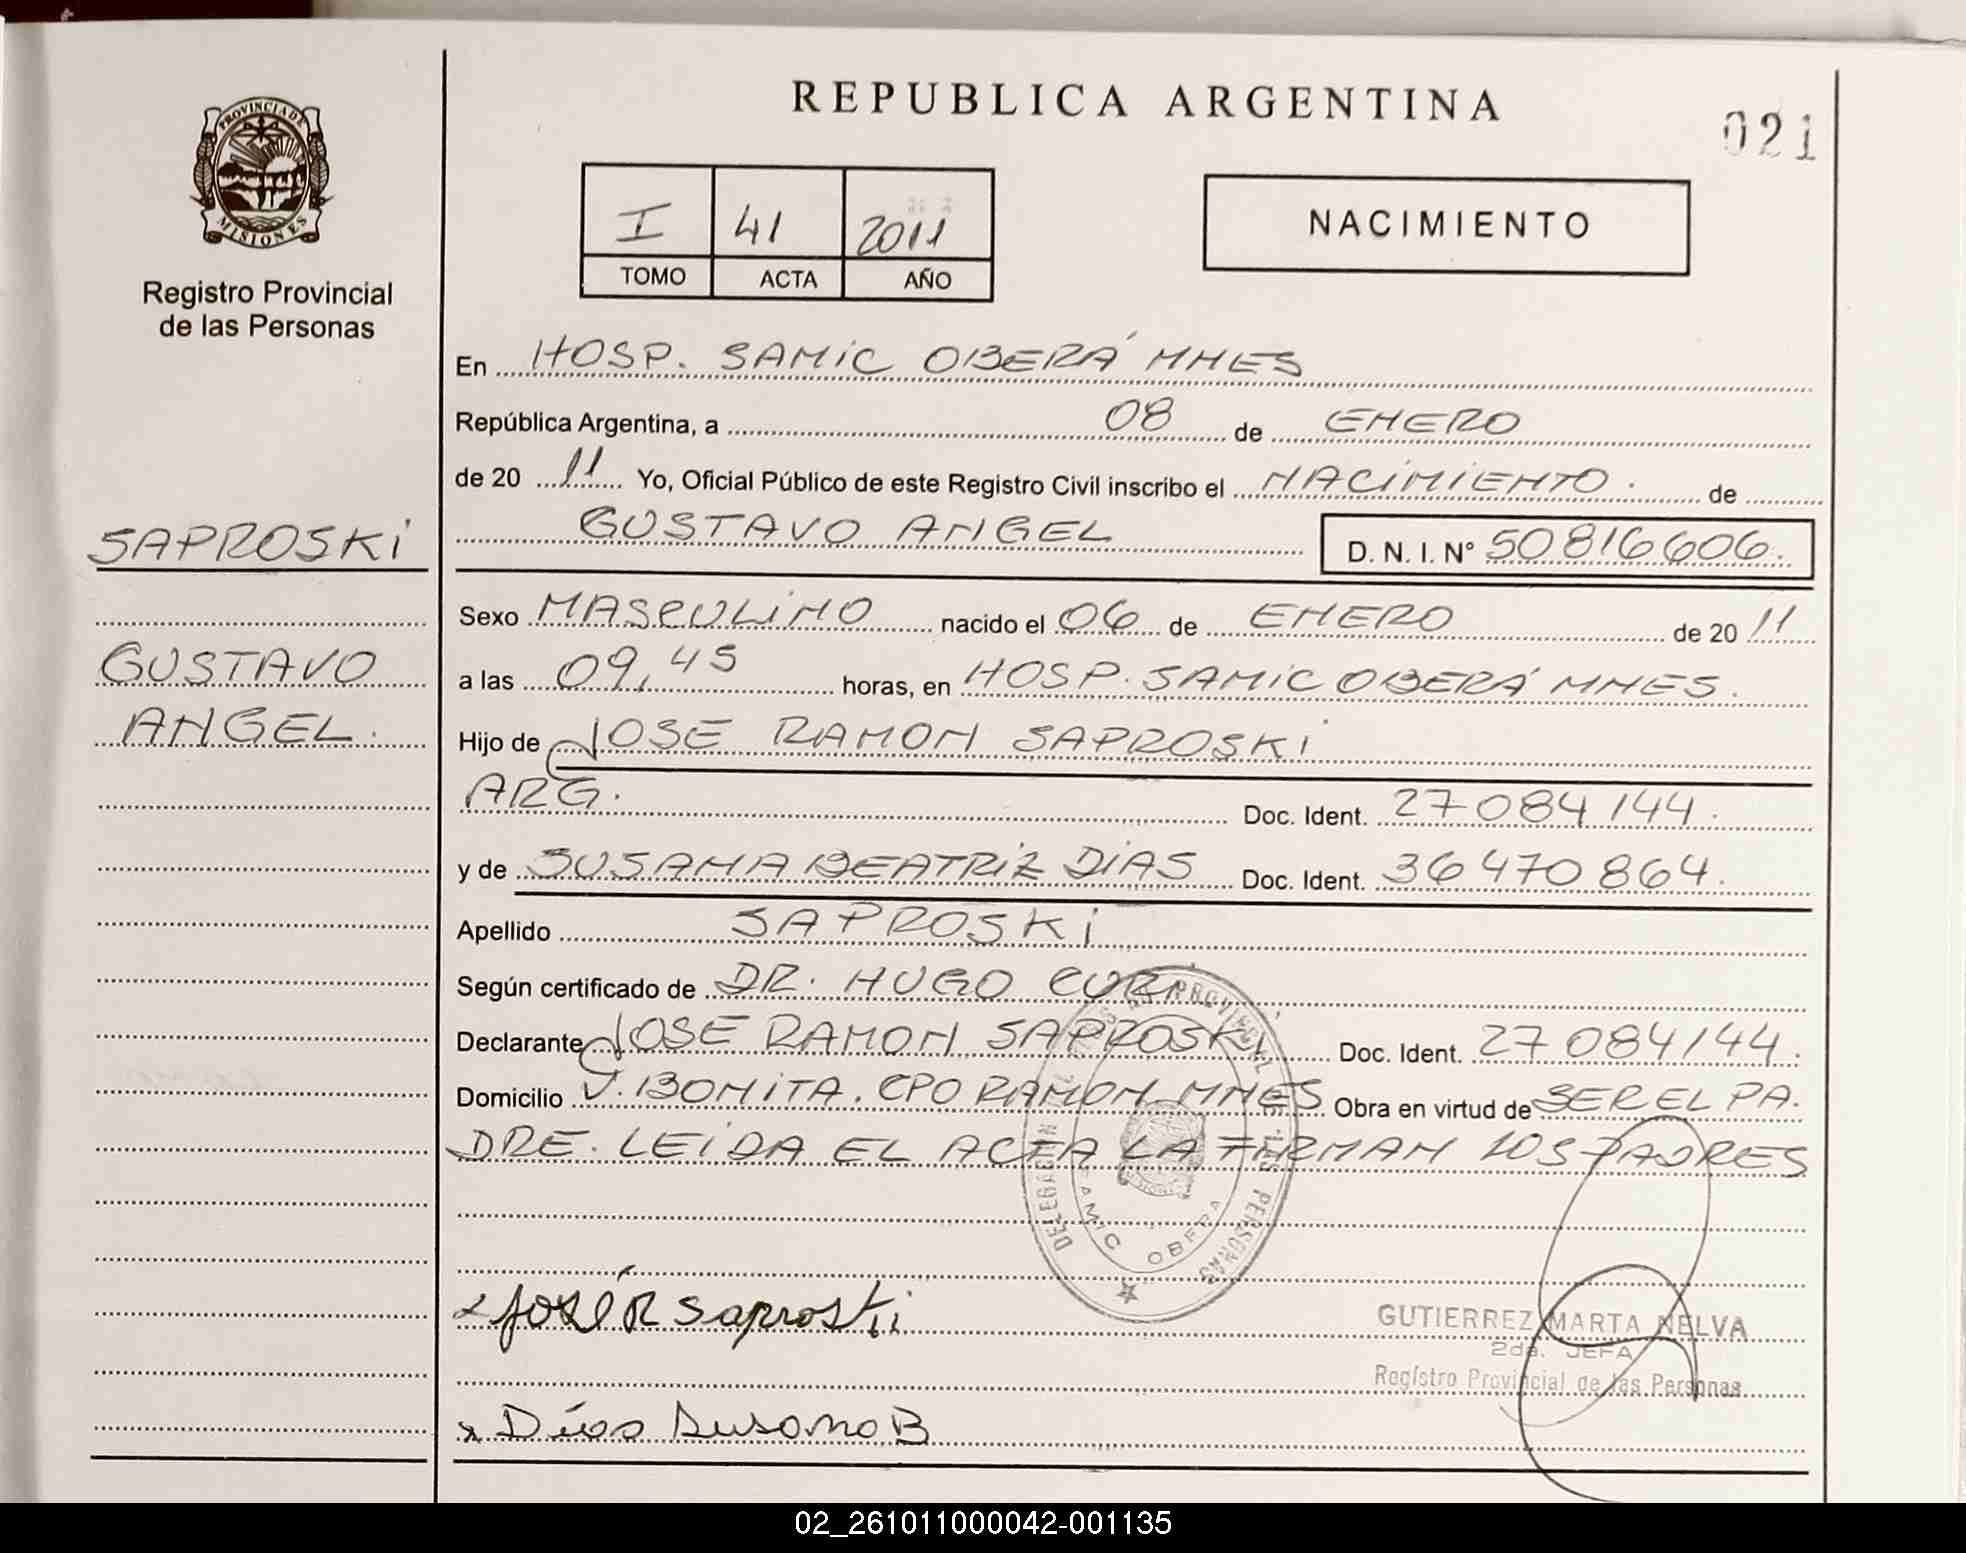 REPUBLICA ARGENTINA
021
PROVINCIA DE
MISIONES
Registro Provincial
de las Personas
I 41 2011
TOMO ACTA AÑO
NACIMIENTO
En HOSP. SAMIC OBERÁ MNES
República Argentina, a 08 de ENERO
de 20 11 Yo, Oficial Público de este Registro Civil inscribo el NACIMIENTO. de
GUSTAVO ANGEL D. N. I. N° 50816606.
SAPROSKI
GUSTAVO
ANGEL.
Sexo MASCULINO nacido el 06 de ENERO de 20 11
a las 09,45 horas, en HOSP. SAMIC OBERÁ MNES.
Hijo de JOSE RAMON SAPROSKI
ARG. Doc. Ident. 27084144.
y de SUSANA BEATRIZ DIAS Doc. Ident. 36470864.
Apellido SAPROSKI
Según certificado de DR. HUGO CURI
Declarante JOSE RAMON SAPROSKI Doc. Ident. 27084144.
Domicilio V. BONITA. CPO RAMON MNES Obra en virtud de SER EL PA.
DRE. LEIDA EL ACTA LA FIRMAN LOS PADRES
DELEGACION PROVINCIAL DE LAS PERSONAS
SAMIC OBERA
José R Saproski
GUTIERREZ MARTA NELVA
2da. JEFA
Registro Provincial de las Personas
x Días Susana B
02_261011000042-001135